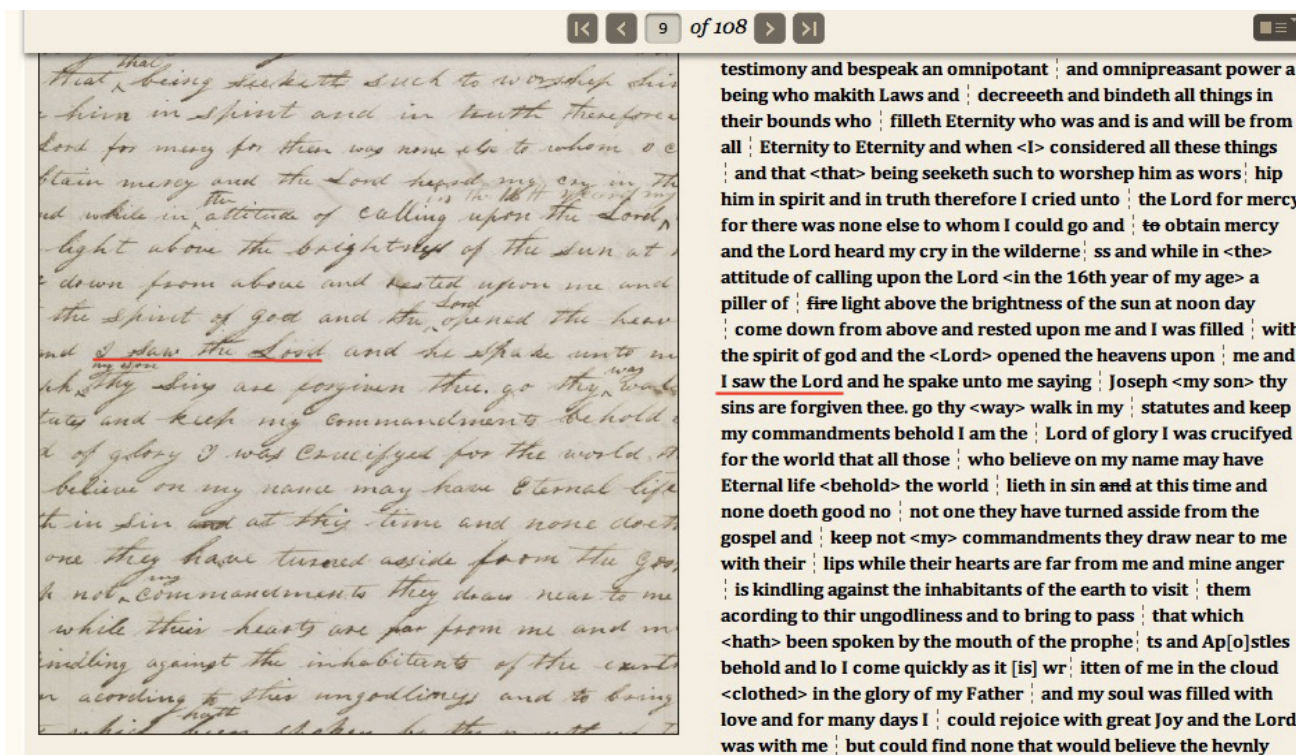 9 of 108
that
that ‸ being seeketh such to worshep him
him in spirit and in truth therefore
Lord for mercy for there was none else to whom I c
btain mercy and the Lord heard my cry in the
the in the 16th year of my
nd while in ‸ attitude of calling upon the Lord ‸
light above the brightness of the sun at
down from above and rested upon me and
Lord
the spirit of god and the ‸ opened the heav
nd I saw the Lord and he spake unto m
my son was
ph ‸ thy sins are forgiven thee. go thy ‸ walk
tutes and keep my commandments behold
d of glory I was crucifyed for the world
believe on my name may have Eternal life
th in sin and at this time and none doeth
one they have turned asside from the gos
my
p not ‸ commandments they draw near to me
while their hearts are far from me and m
indling against the inhabitants of the earth
acording to thir ungodliness and to bring
hath
which been spoken by the mouth
testimony and bespeak an omnipotant ¦ and omnipreasant power a
being who makith Laws and ¦ decreeeth and bindeth all things in
their bounds who ¦ filleth Eternity who was and is and will be from
all ¦ Eternity to Eternity and when <I> considered all these things
¦ and that <that> being seeketh such to worshep him as wors¦ hip
him in spirit and in truth therefore I cried unto ¦ the Lord for mercy
for there was none else to whom I could go and ¦ to obtain mercy
and the Lord heard my cry in the wilderne¦ ss and while in <the>
attitude of calling upon the Lord <in the 16th year of my age> a
piller of ¦ fire light above the brightness of the sun at noon day
¦ come down from above and rested upon me and I was filled ¦ with
the spirit of god and the <Lord> opened the heavens upon ¦ me and
I saw the Lord and he spake unto me saying ¦ Joseph <my son> thy
sins are forgiven thee. go thy <way> walk in my ¦ statutes and keep
my commandments behold I am the ¦ Lord of glory I was crucifyed
for the world that all those ¦ who believe on my name may have
Eternal life <behold> the world ¦ lieth in sin and at this time and
none doeth good no ¦ not one they have turned asside from the
gospel and ¦ keep not <my> commandments they draw near to me
with their ¦ lips while their hearts are far from me and mine anger
¦ is kindling against the inhabitants of the earth to visit ¦ them
acording to thir ungodliness and to bring to pass ¦ that which
<hath> been spoken by the mouth of the prophe¦ ts and Ap[o]stles
behold and lo I come quickly as it [is] wr¦ itten of me in the cloud
<clothed> in the glory of my Father ¦ and my soul was filled with
love and for many days I ¦ could rejoice with great Joy and the Lord
was with me ¦ but could find none that would believe the hevnly